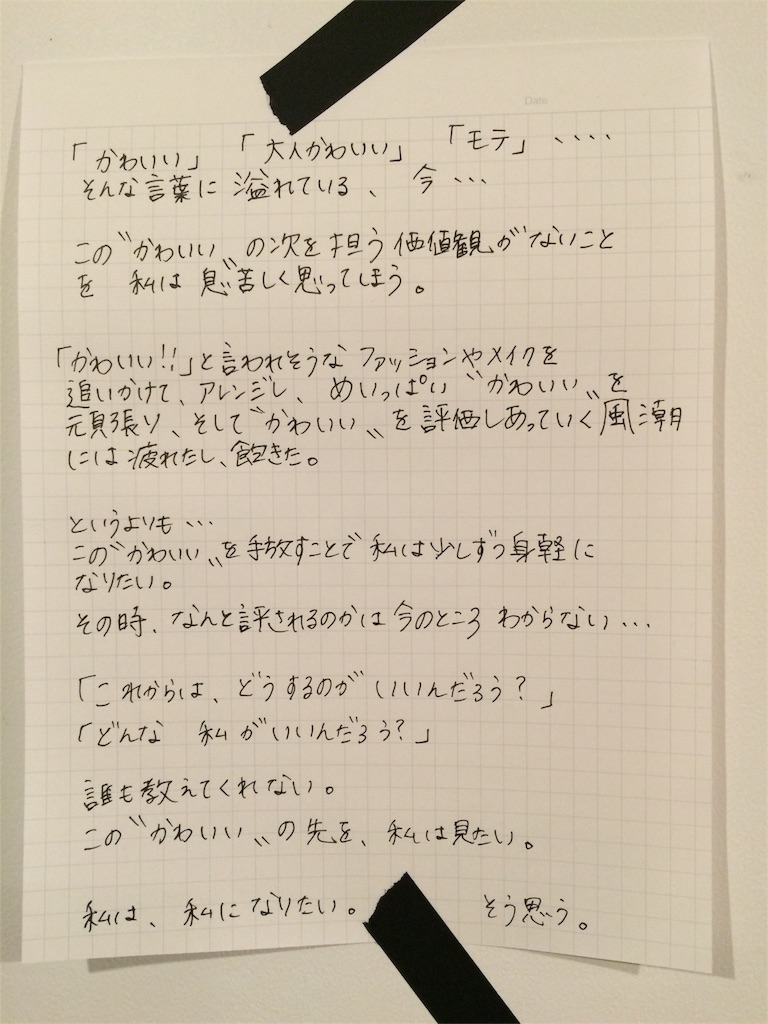 Date
「かわいい」 「大人かわいい」 「モテ」、、、、
そんな言葉に溢れている、今・・・
この〝かわいい〟の次を担う価値観がないこと
を 私は息苦しく思ってしまう。
「かわいい!!」と言われそうなファッションやメイクを
追いかけて、アレンジし、めいっぱい〝かわいい〟を
頑張り、そして〝かわいい〟を評価しあっていく風潮
には疲れたし、飽きた。
というよりも・・・
この〝かわいい〟を手放すことで私は少しずつ身軽に
なりたい。
その時、なんと評されるのかは今のところ わからない・・・
「これからは、どうするのがいいんだろう?」
「どんな 私がいいんだろう?」
誰も教えてくれない。
この〝かわいい〟の先を、私は見たい。
私は、私になりたい。 そう思う。